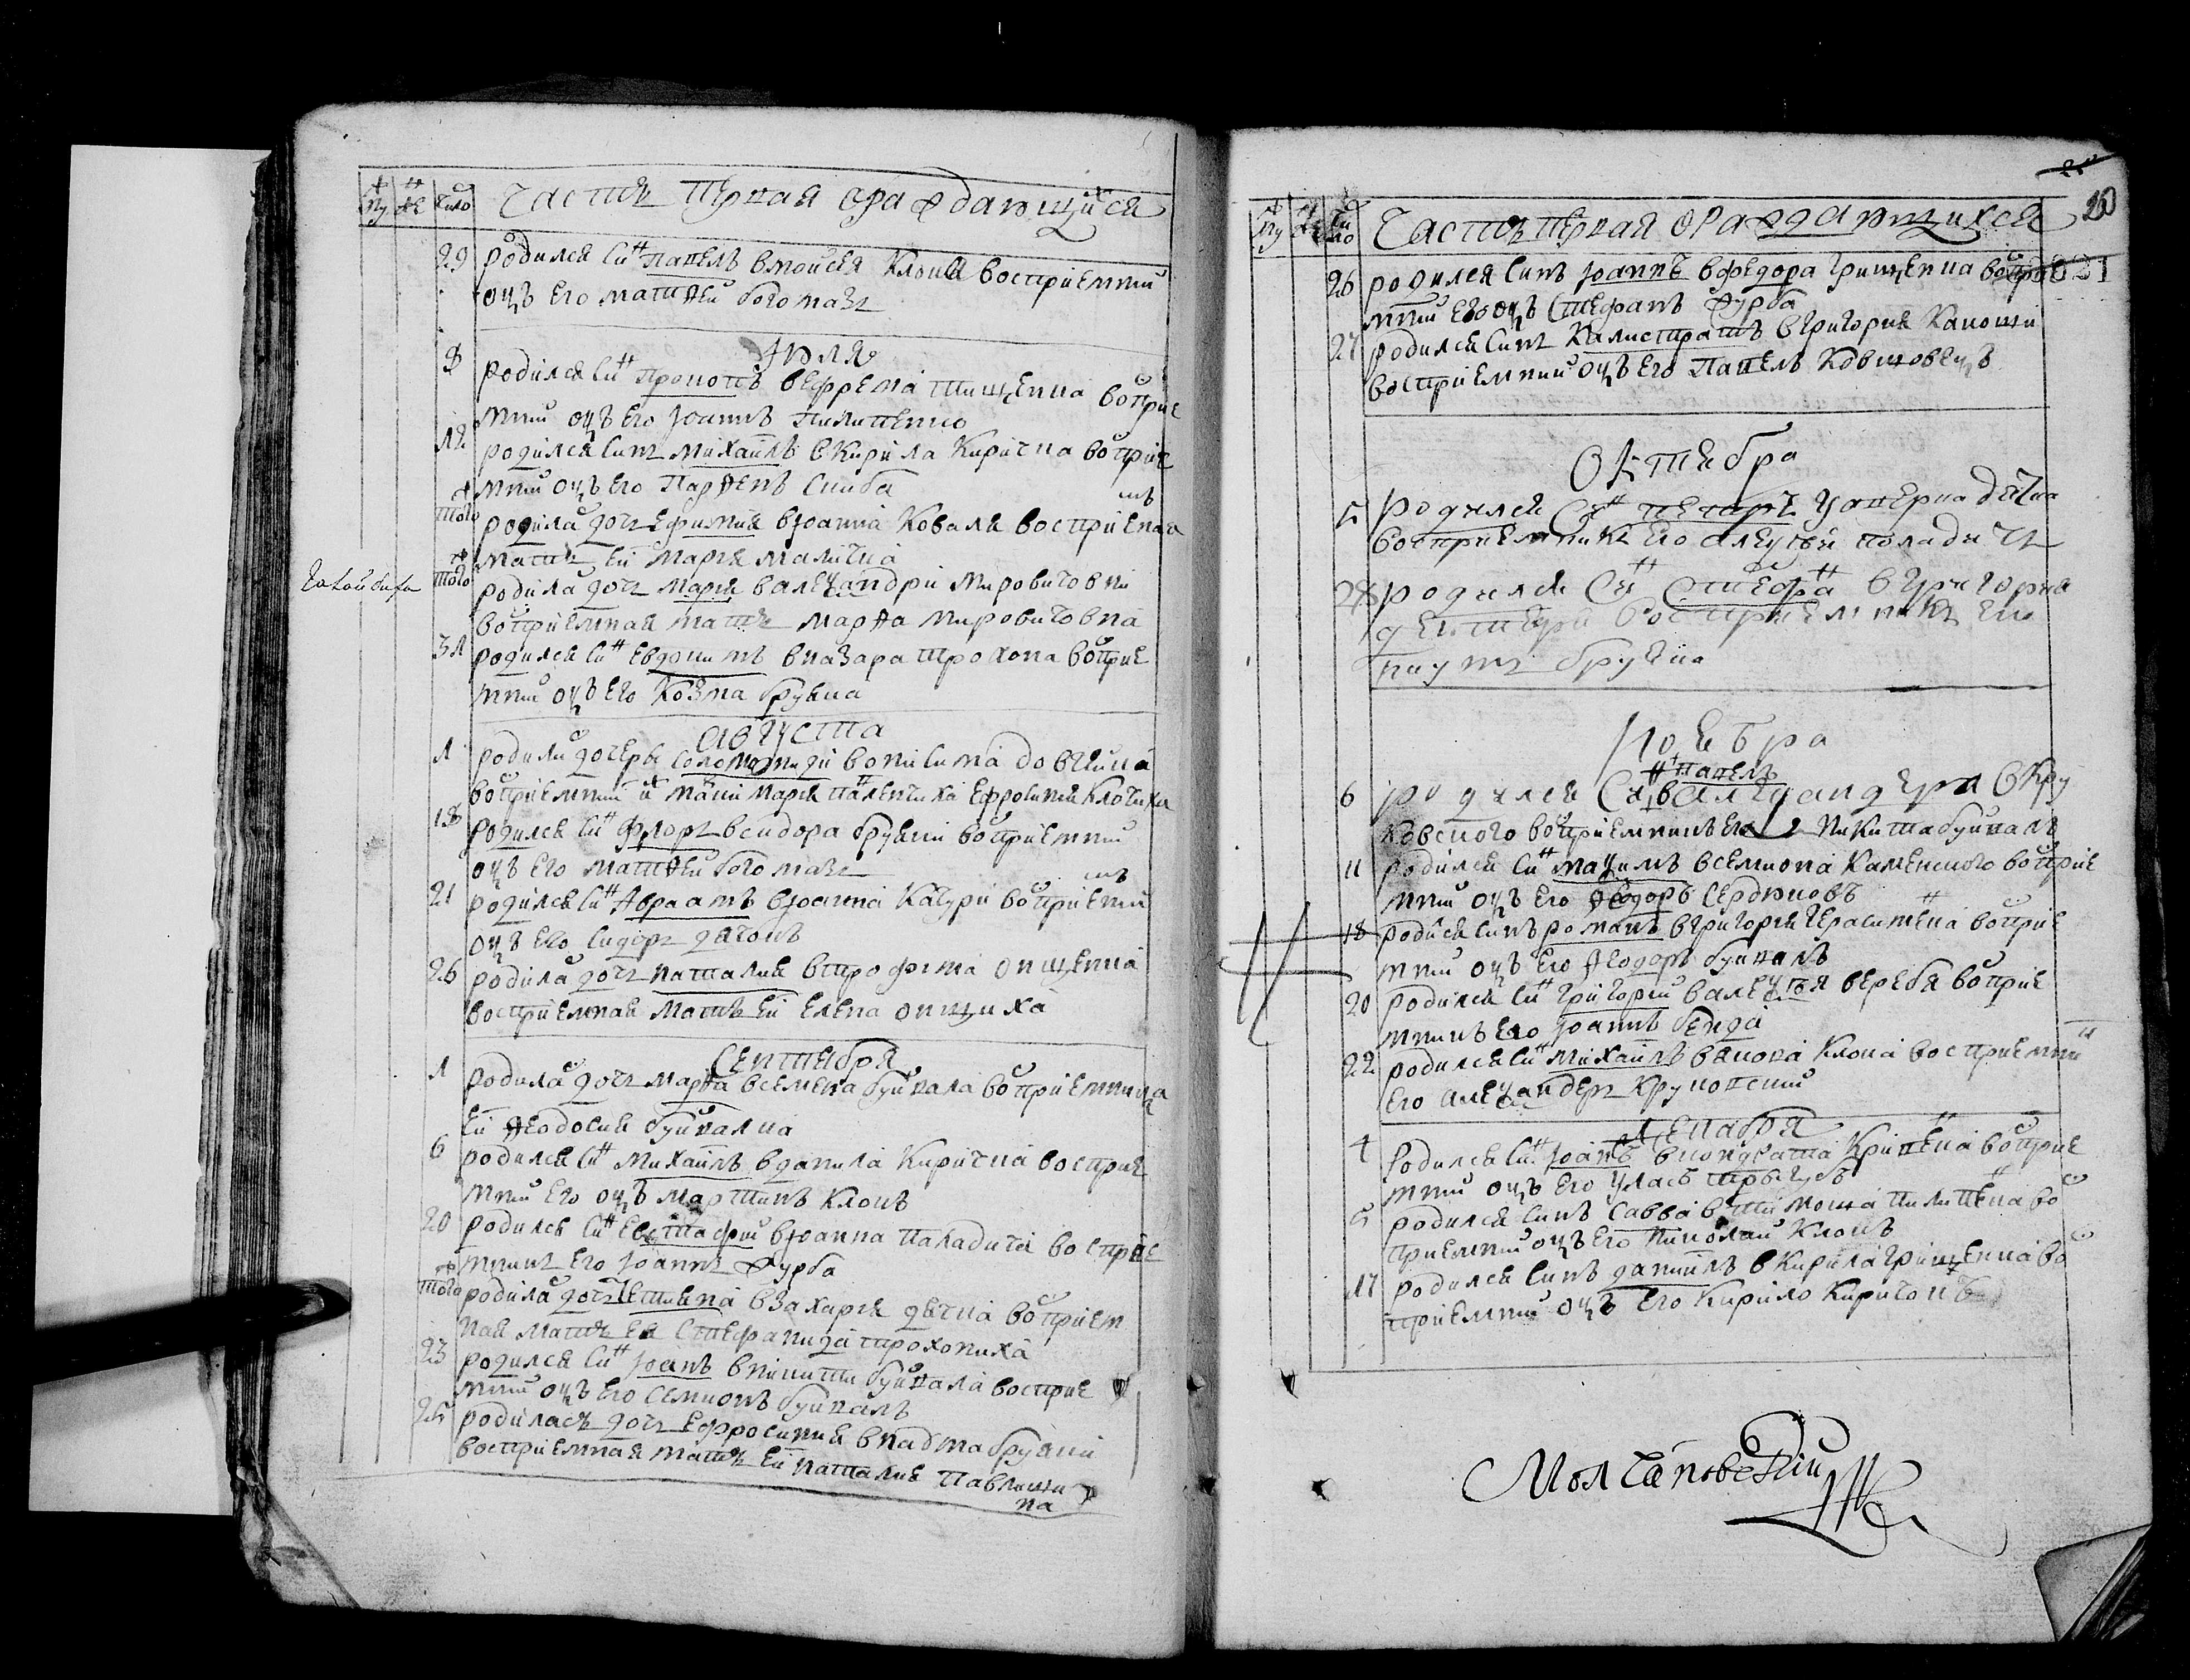 му же число Часть первая о раждающихся
29 родился снъ Павелъ в Моисея Клоця восприемний
оцъ его Матѳей богомазъ
Июля
8 родился снъ Прокопъ в Ефрема Тищенка восприе
мний оцъ его Иоаннъ Пилипенко
12 родился синъ Михаилъ в Кирила Киричка восприе
мний оцъ его Парѳенъ Скиба
того родилась дочъ Ефимия в Иоанна Коваля восприемная
матъ ей Мария Маличка
того родилас дочъ Мария в Александри Мировитовни
восприемная матъ Марѳа Мировитовна
31 родился снъ Евдокимъ в Назара Трохона восприе
мний оцъ его Козма Бруяка
Августа
1 родили дочеры Соломониди в Онисима Довгиша
восприемнии Мария Палентиха Ефросиния Клочиха
18 родился снъ Флоръ в Сидора Бруяки восприемний
оцъ его Матѳей богомазъ
21 родился снъ Авраамъ в Иоанна Качури восприемний
оцъ его Сидоръ дячокъ
26 родилас дочъ Наталия в Трофима Онищенка
восприемная матъ ей Елена Онищиха
Сентебря
1 родилас дочъ Марѳа в Семена Буйвала восприемница
ей Ѳеодосия Буйвалка
6 родился снъ Михаилъ в Данила Киричка восприе
мний его оцъ Мартинъ Клоцъ
20 родился снъ Евстафий в Иоанна Паладича восприе
мникъ его Иоаннъ Журба
того родилас дочъ в Захария дячка восприем
ная матъ ея Стефанида Трохониха
23 родился снъ Иоанъ в Никити Буйвала восприе
мний оцъ его Семионъ Буйвалъ
25 родиласъ дочъ Ефросиния в Павла Бруяки
восприемная матъ ей Наталия Павлищи
на
20
му же число Часть первая о раждающихся
26 родился синъ Иоаннъ в Федора Грищенка восприе
мний его оцъ Стефанъ Журба
27 родился синъ Калистратъ в Григория Каноши
восприемний оцъ его Павелъ Ковшовецъ
Октебра
5 Родился снъ Петръ
восприемникъ его Алексей Паладичъ
28 родился снъ Стефанъ в Григория
восприемникъ его
Наумъ Бруяка
Ноебра
6 родился снъ Павелъ в Александера Кру
ковского восприемникъ его Никита Буйвалъ
11 родился снъ Максимъ в Семиона Каменского восприе
мний оцъ его Ѳеодоръ Сердюковъ
18 родися синъ Романъ в Григория Герасименка восприе
мний оцъ его Ѳеодоръ Буйвалъ
20 родился снъ Григорий в Алексея Веребя восприе
мникъ его Иоаннъ Бенда
22 родился снъ Михаилъ в Якова Клоца восприемник
его Александеръ Круковский
Декабря
4 родился снъ Иоанъ в Кондрата Кривенка восприе
мний оцъ его Уласъ
5 родился синъ Савва в Тимоша Пилипенка вос
приемний оцъ его Николай Клоцъ
17 родился синъ Даниилъ в Кирила Грищенка вос
приемний оцъ его Кирило Киричокъ
Молчановский